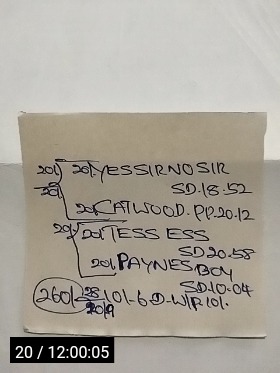 20/ 20/. YESSIRNOSIR
20/ SD.18.52
20/. CATWOOD. PP.20.12
20/ 20/. TESS ESS
SD 20.58
20/. PAYNES BOY
SD.10.04
260/ 28 10/-6
2019
20 / 12:00:05